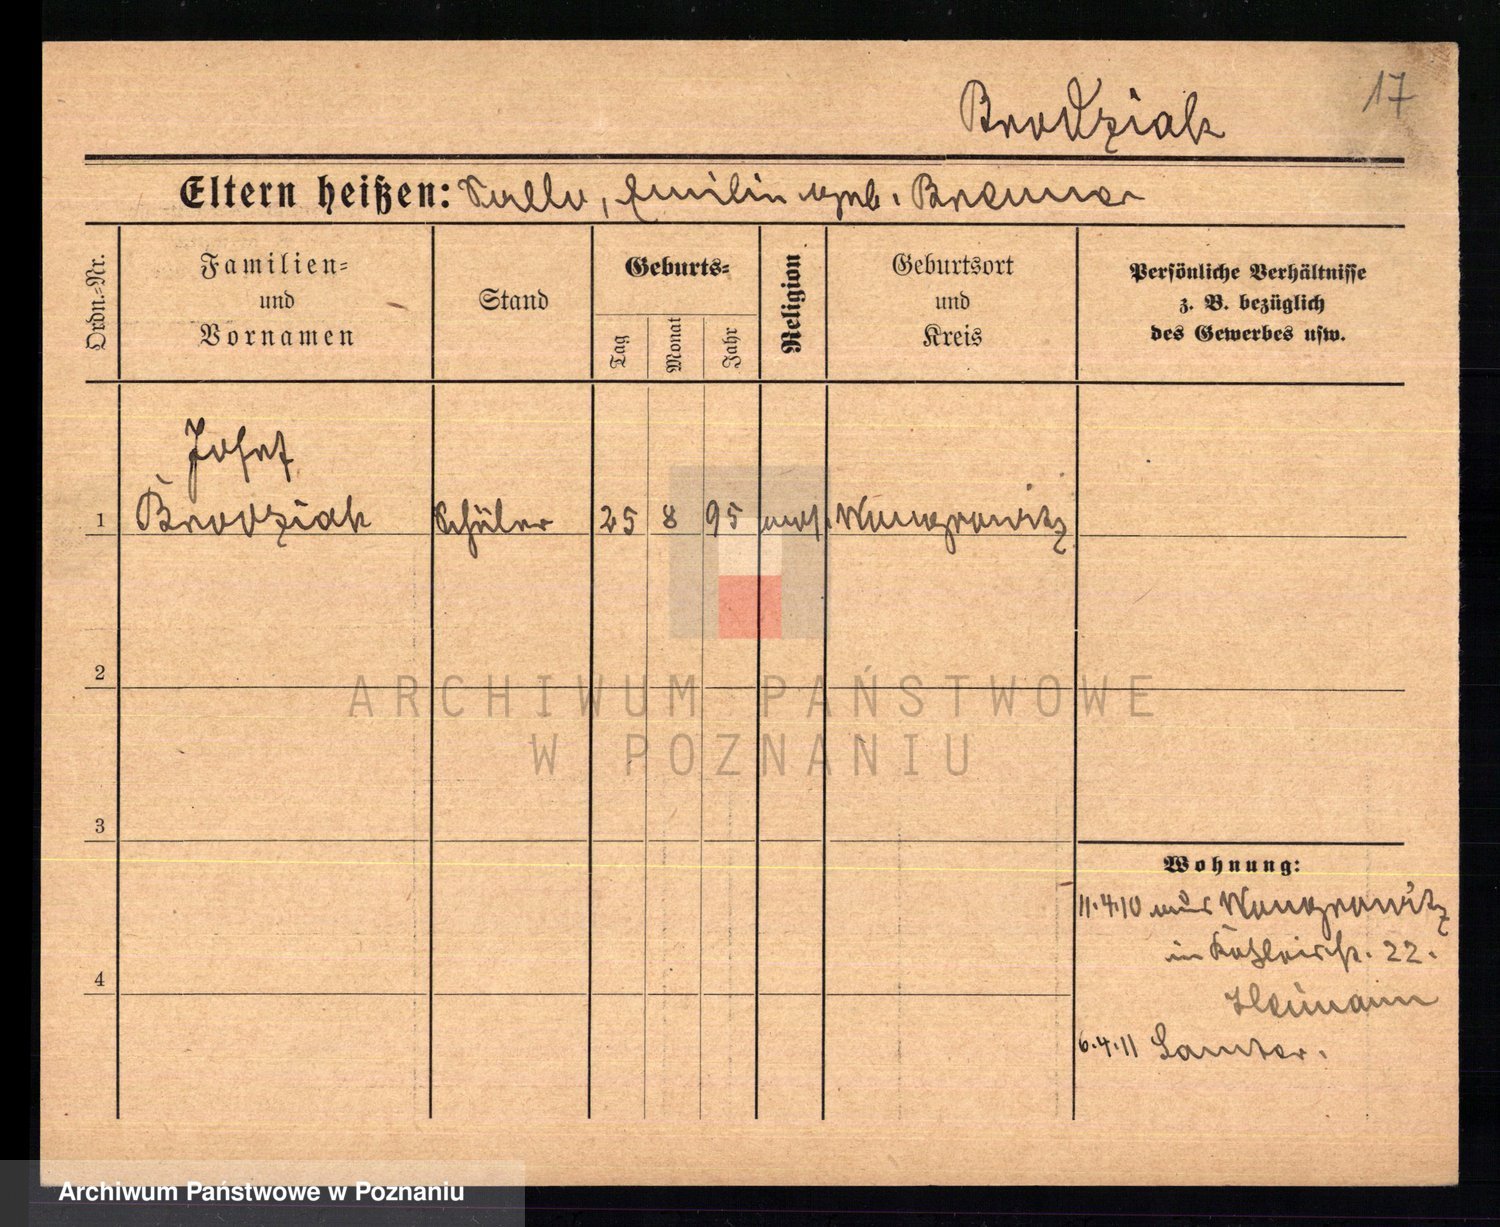 17
Brodziak
Eltern heißen: Sally, Emilie geb. Brenner
Ordn.-Nr.
Familien-
und
Vornamen
Stand
Geburts-
Tag
Monat
Jahr
Religion
Geburtsort
und
Kreis
Persönliche Verhältnisse
z. B. bezüglich
des Gewerbes usw.
Josef
1 Brodziak Schüler 25 8 95 mos. Wongrowitz
2
ARCHIWUM PAŃSTWOWE
W POZNANIU
3
Wohnung:
11.4.10 aus Wongrowitz
in 22.
Heimann
4
6.4.11 Samter.
Archiwum Państwowe w Poznaniu